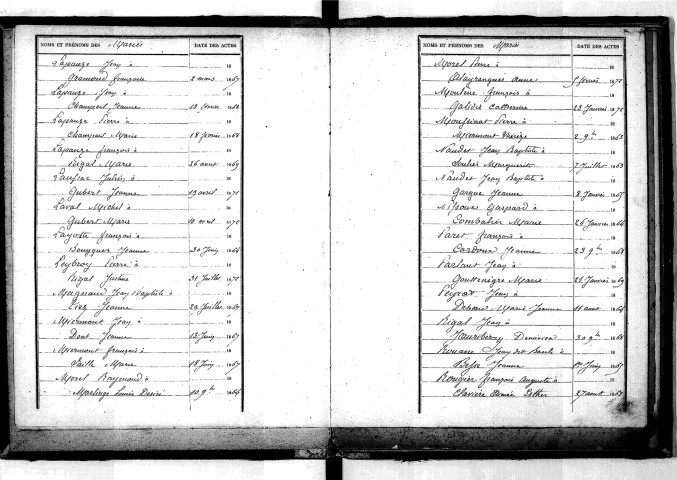 NOMS ET PRÉNOMS DES Mariés DATE DES ACTES
Lapauze Jean à 18
Gramond françoise 2 mars 1867
Lapauze Jean à 18
Champeil Jeanne 13 février 1868
Lapauze Pierre à 18
Champeil Marie 18 février 1868
Lapauze françois à 18
Rigal Marie 26 aout 1869
Laujac Julien à 18
Gubert Jeanne 19 avril 1871
Laval Michel à 18
Gubert Marie 10 aout 1872
Layotte françois à 18
Bouyguer Jeanne 30 Juin 1866
Leybroy Pierre à 18
Rigal Justine 31 Juillet 1872
Magnain Jean Baptiste à 18
Jeanne 29 Juillet 1869
Miermont Jean à 18
Dont Jeanne 13 Juin 1867
Miermont françois à 18
Vaille Marie 18 Juin 1867
Morel Raymond à 18
Martinge Louise Desirée 10 9bre 1866
NOMS ET PRÉNOMS DES Mariés DATE DES ACTES
Morel Pierre à 18
Delayrangues Anne 5 février 1872
Moulène françois à 18
Galière Catherine 22 Janvier 1872
Moussinat Pierre à 18
Miermont Thérèze 2 9bre 1863
Naudet Jean Baptiste à 18
Soulier Marguerite 7 Juillet 1863
Naudet Jean Baptiste à 18
Gargne Jeanne 8 Janvier 1865
Gaspard à 18
Combalier Marie 26 Janvier 1866
Paret françois à 18
Cardoux Jeanne 23 9bre 1868
Parlant Jean à 18
Gouttenègre Marie 21 Janvier 1869
Peyrat Jean à 18
Marie Jeanne 11 aout 1866
Rigal Jean à 18
30 9bre 1868
Rouane Jean dit à 18
Besse Jeanne 1er Juin 1865
Rougier françois Auguste à 18
Clavière Aimée Esther 27 aout 1865